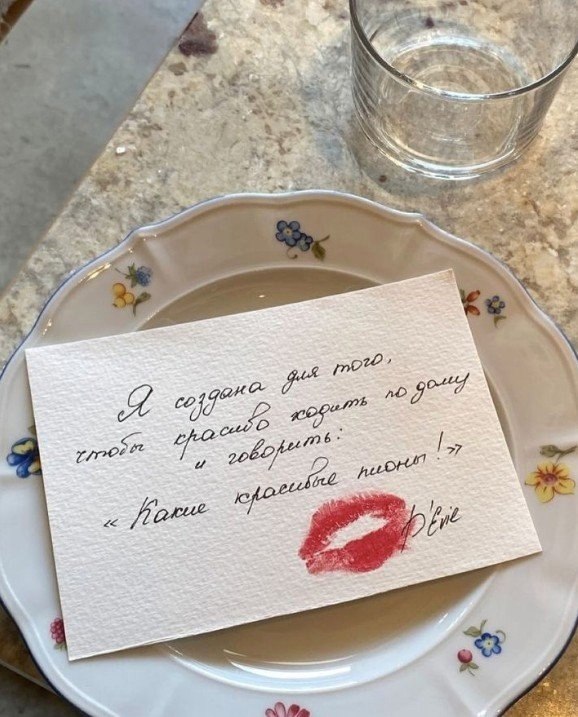 Я создана для того,
чтобы красиво ходить по дому
и говорить:
« Какие красивые пионы! »
D'Erie